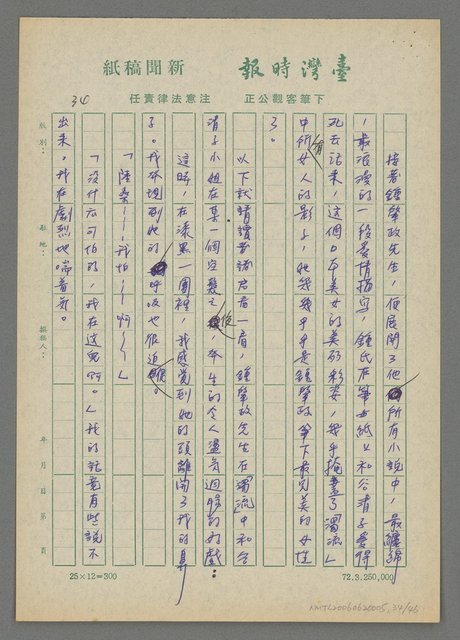 臺灣時報 新聞稿紙
下筆客觀公正 注意法律責任
34
接著鍾肇政先生,便展開了他所有小說中,最纏綿
,最浪漫的一段愛情描寫,鍾氏在筆
死去活來,這個日本美女的美弱彩姿,幾乎掩蓋了「濁流」
中所有女人的影子,她幾幾乎乎是鍾肇政筆下最完美的女性
了。
以下就請讀者諸君看一看,鍾肇政先生在「濁流」中和谷
清子小姐在某一個空襲之後,發生的令人盪氣迴腸的好戲:
這時,在漆黑一團裡,我感覺到她的頭離開了我的鼻
子。我發現到她的呼吸也很迫促。
「陸桑——我怕——啊——」
「沒什麼可怕的,我在這兒啊。」我的話竟有些說不
出來。我在劇烈地喘着氣。
版別: 駐地: 撰稿人: 年 月 日 第 頁
25×12=300
72.3.250,000
NMTL20060620005,34/46